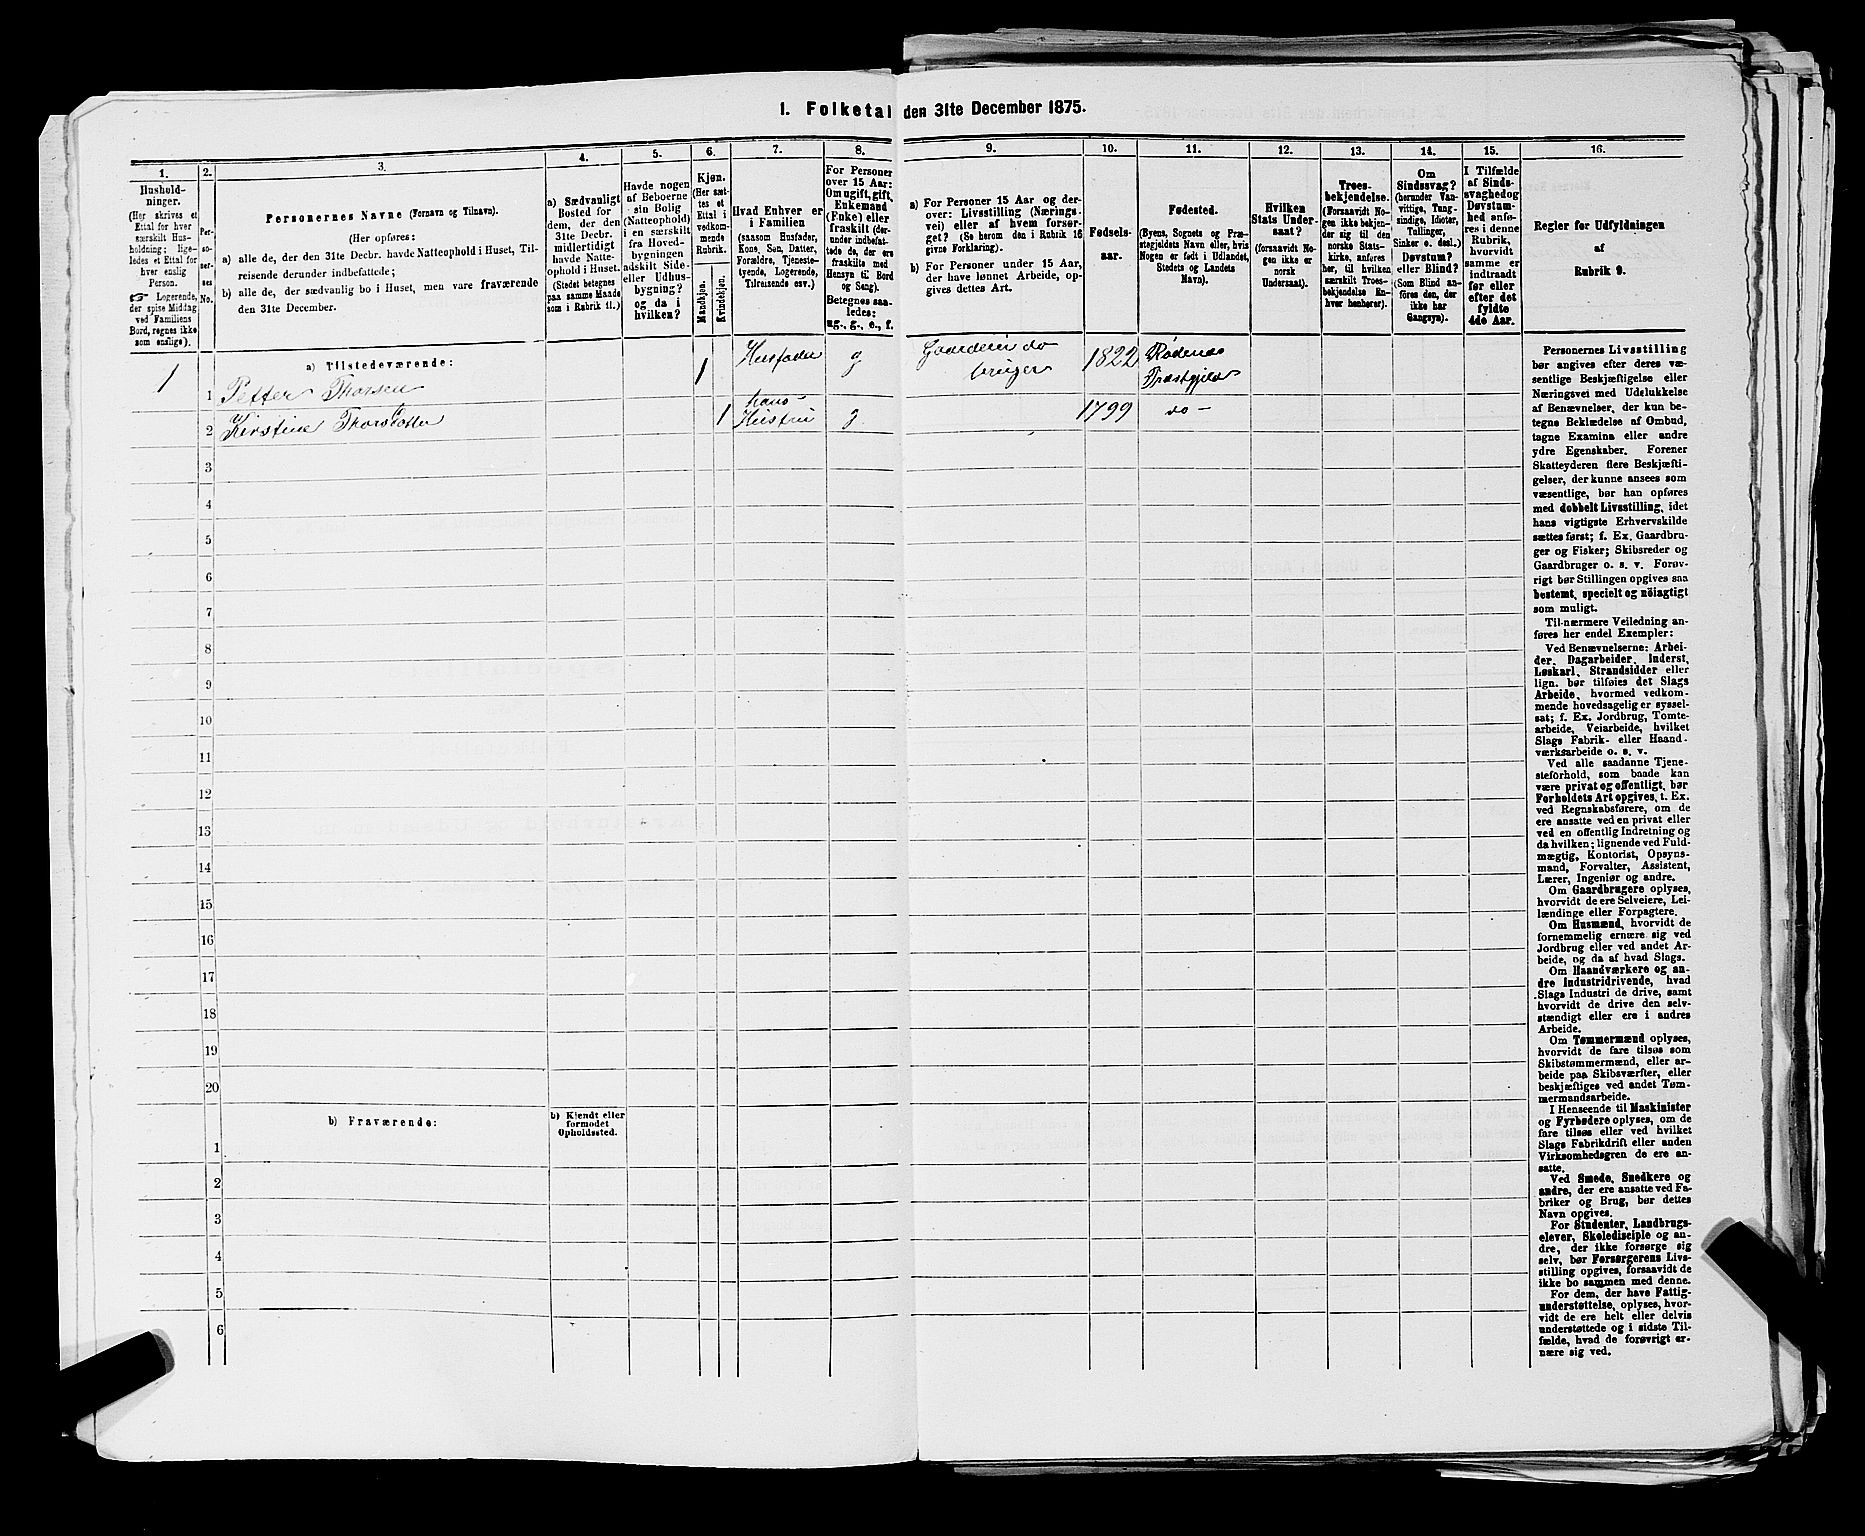 1. Folketal den 31te December 1875.
1.
2.
3.
4.
5.
6.
7.
8.
9.
10.
11.
12.
13.
14.
15.
16.
Hushold-
ninger.
(Her skrives et
Ettal for hver
særskilt Hus-
holdning; lige-
ledes et Ettal for
hver enslig
Person.
☞ Logerende,
der spise Middag
ved Familiens
Bord, regnes ikke
som enslige).
Per-
so-
ner-
nes
No.
Personernes Navne (Fornavn og Tilnavn).
(Her opføres:
a) alle de, der den 31te Decbr. havde Natteophold i Huset, Til-
reisende derunder indbefattede;
b) alle de, der sædvanlig bo i Huset, men vare fraværende
den 31te December.
a) Sædvanligt
Bosted for
dem, der den
31te Decbr.
midlertidigt
havde Natte-
ophold i Huset.
(Stedet betegnes
paa samme Maade
som i Rubrik 11.)
Havde nogen
af Beboerne
sin Bolig
(Natteophold)
i en særskilt
fra Hoved-
bygningen
adskilt Side-
eller Udhus-
bygning?
og da i
hvilken?
Kjøn.
(Her sæt-
tes et
Ettal i
vedkom-
mende
Rubrik.
Mandkjøn.
Kvindekjøn.
Hvad Enhver er
i Familien
(saasom Husfader,
Kone, Søn, Datter,
Forældre, Tjeneste-
tyende, Logerende,
Tilreisende osv.)
For Personer
over 15 Aar:
Om ugift, gift,
Enkemand
(Enke) eller
fraskilt (der-
under indbefat-
tede de, der ere
fraskilte med
Hensyn til Bord
og Seng).
Betegnes saa-
ledes:
ug., g., e., f.
a) For Personer 15 Aar og der-
over: Livsstilling (Nærings-
vei) eller af hvem forsør-
get? (Se herom den i Rubrik 16
givne Forklaring).
b) For Personer under 15 Aar,
der have lønnet Arbeide, op-
gives dettes Art.
Fødsels-
aar.
Fødested.
(Byens, Sognets og Præ-
stegjeldets Navn eller, hvis
Nogen er født i Udlandet,
Stedets og Landets
Navn).
Hvilken
Stats Under-
saat?
(forsaavidt No-
gen ikke er
norsk
Undersaat).
Troes-
bekjendelse.
(Forsaavidt No-
gen ikke bekjen-
der sig til den
norske Stats-
kirke, anføres
her, til hvilken
særskilt Troes-
bekjendelse En-
hver henhører).
Om
Sindssvag?
(herunder Van-
vittige, Tung-
sindige, Idioter,
Tullinger,
Sinker o. desl.)
Døvstum?
eller Blind?
(Som Blind an-
føres den, der
ikke har
Gangsyn).
I Tilfælde
af Sinds-
svaghed og
Døvstum-
hed anfø-
res i denne
Rubrik,
hvorvidt
samme er
indtraadt
før eller
efter det
fyldte
4de Aar.
Regler for Udfyldningen
af
Rubrik 9.
a) Tilstedeværende:
1 1 Petter Thorsen 1 Husfader g Gaardeier do
bruger 1822 Rødenæs
Præstgjeld
2 Kirstine Thorsdatter 1 hans
Hustru g 1799 do -
3
4
5
6
7
8
9
10
11
12
13
14
15
16
17
18
19
20
b) Fraværende:
b) Kjendt eller
formodet
Opholdssted.
1
2
3
4
5
6
Personernes Livsstilling
bør angives efter deres væ-
sentlige Beskjæftigelse eller
Næringsvei med Udelukkelse
af Benævnelser, der kun be-
tegne Beklædelse af Ombud,
tagne Examina eller andre
ydre Egenskaber. Forener
Skatteyderen flere Beskjæfti-
gelser, der kunne ansees som
væsentlige, bør han opføres
med dobbelt Livsstilling, idet
hans vigtigste Erhvervskilde
sættes først; f. Ex. Gaardbru-
ger og Fisker; Skibsreder og
Gaardbruger o. s. v. Forøv-
rigt bør Stillingen opgives saa
bestemt, specielt og nøiagtigt
som muligt.
Til nærmere Veiledning an-
føres her endel Exempler:
Ved Benævnelserne: Arbei-
der, Dagarbeider, Inderst,
Løskarl, Strandsidder eller
lign. bør tilføies det Slags
Arbeide, hvormed vedkom-
mende hovedsagelig er syssel-
sat; f. Ex. Jordbrug, Tomte-
arbeide, Veiarbeide, hvilket
Slags Fabrik- eller Haand-
værksarbeide o. s. v.
Ved alle saadanne Tjene-
steforhold, som baade kan
være privat og offentligt, bør
Forholdets Art opgives, f. Ex.
ved Regnskabsførere, om de
ere ansatte ved en privat eller
ved en offentlig Indretning og
da hvilken; lignende ved Fuld-
mægtig, Kontorist, Opsyns-
mand, Forvalter, Assistent,
Lærer, Ingeniør og andre.
Om Gaardbrugere oplyses,
hvorvidt de ere Selveiere, Lei-
lændinge eller Forpagtere.
Om Husmænd, hvorvidt de
fornemmelig ernære sig ved
Jordbrug eller ved andet Ar-
beide, og da af hvad Slags.
Om Haandværkere og an-
dre Industridrivende, hvad
Slags Industri de drive, samt
hvorvidt de drive den selv-
stændigt eller ere i andres
Arbeide.
Om Tømmermænd oplyses,
hvorvidt de fare tilsøs som
Skibstømmermænd, eller ar-
beide paa Skibsværfter, eller
beskjæftiges ved andet Tøm-
mermandsarbeide.
I Henseende til Maskinister
og Fyrbødere oplyses, om de
fare tilsøs eller ved hvilket
Slags Fabrikdrift eller anden
Virksomhedsgren de ere an-
satte.
Ved Smede, Snedkere og
andre, der ere ansatte ved Fa-
briker og Brug, bør dettes
Navn opgives.
For Studenter, Landbrugs-
elever, Skoledisciple og an-
dre, der ikke forsørge sig
selv, bør Forsørgerens Livs-
stilling opgives, forsaavidt de
ikke bo sammen med denne.
For dem, der have Fattig-
understøttelse, oplyses, hvor-
vidt de ere helt eller delvis
understøttede og i sidste Til-
fælde, hvad de forøvrigt er-
nære sig ved.